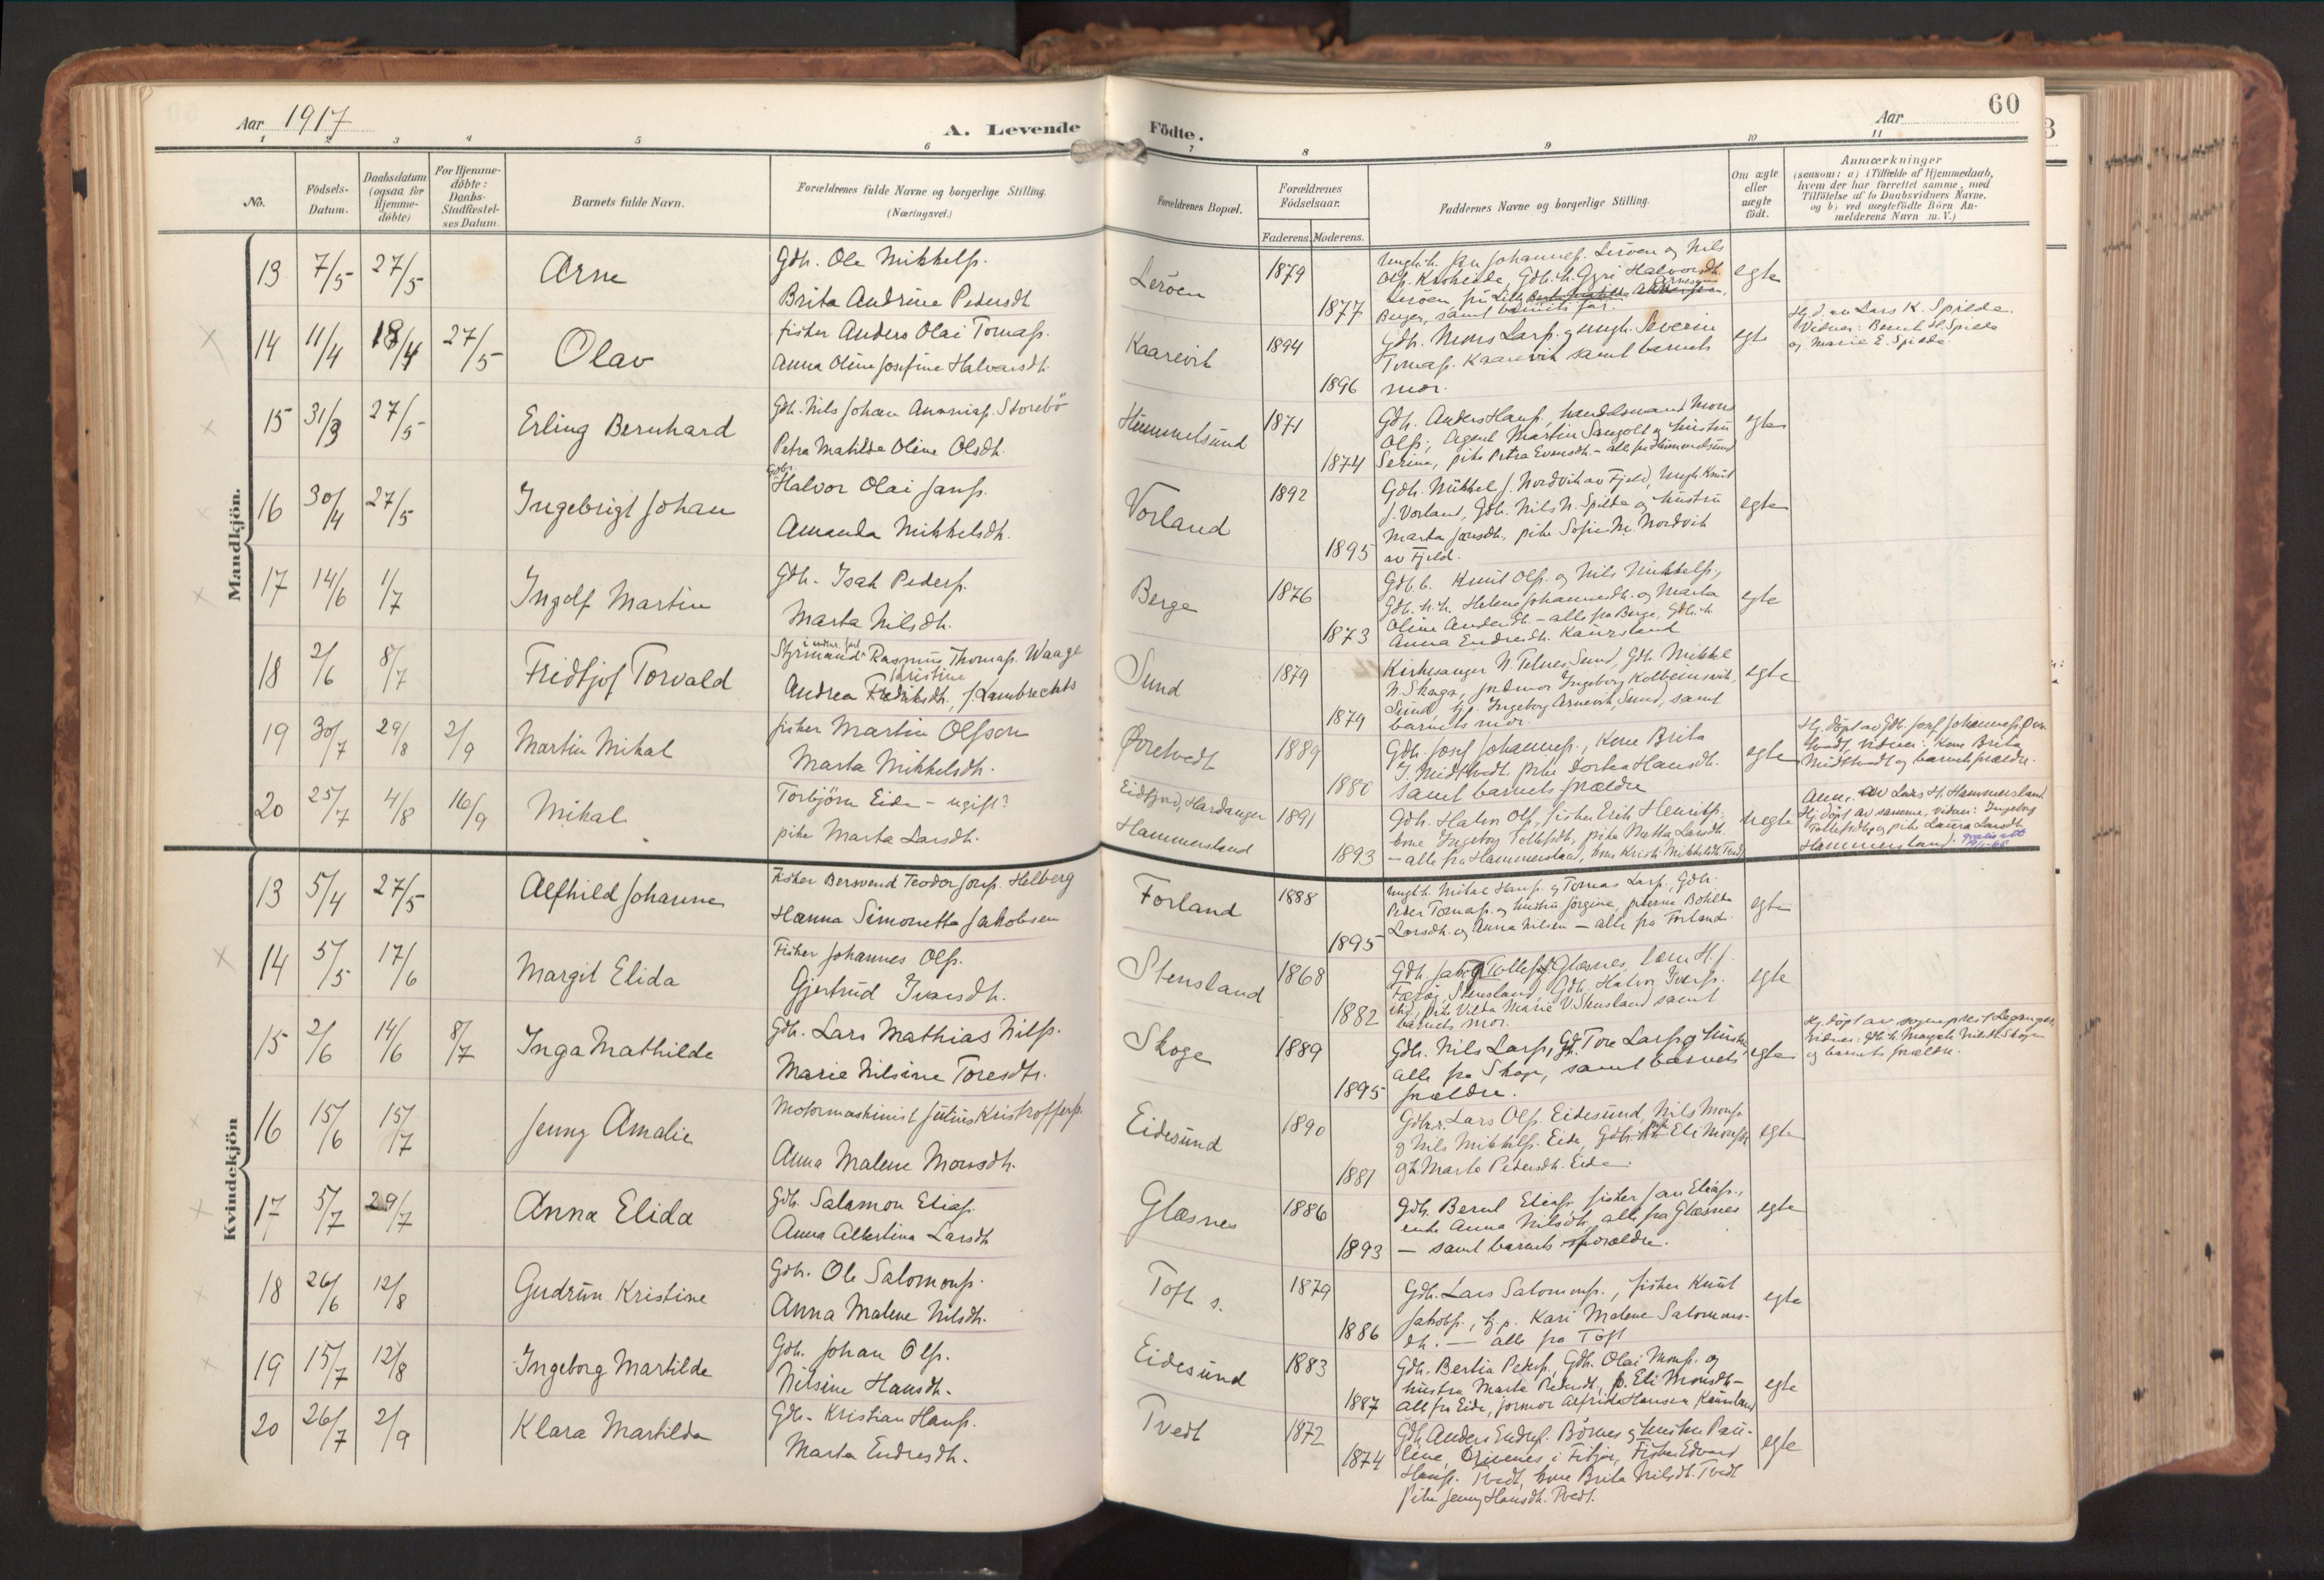 Aar 1917
A. Levende
Födte.
Aar
60
1 2 3 4 5 6 7 8 9 10 11
No.
Födsels-Datum.
Daabsdatum (ogsaa for Hjemme-döbte)
For Hjemme-döbte: Daabs-Stadfæstel-ses Datum.
Barnets fulde Navn.
Forældrenes fulde Navne og borgerlige Stilling.
(Næringsvei.)
Forældrenes Bopæl.
Forældrenes Födselsaar.
Faderens. Moderens.
Faddernes Navne og borgerlige Stilling.
Om ægte eller uægte födt.
Anmærkninger
(saasom: a) i Tilfælde af Hjemmedaab, hvem der har forrettet samme, med Tilföielse af to Daabsvidners Navne. og b) ved uægtefödte Börn An-melderens Navn m. V.)
Mandkjön.
13 7/5 27/5 Arne
Gdb. Ole Mikkels.
Brita Andrine Pedersdh
Leröen 1879 1877
egte
14 11/4 18/4 27/5 Olav
fisker Anders Olai Tomass.
Anna Oline Josefine Halvorsdh.
Kaarevik 1894 1896
Gdb. Mons Larss. og ungk. Severin
Tomass. Kaarevik samt barnets
mor.
egte
Hj. d. av Lars K. Spilde.
Vidner: Bernt H. Spilde
og Marie E. Spilde
15 31/3 27/5 Erling Bernhard
Gdb. Nils Johan Ananias. Storebö
Petra Matilde Oline Olsdh.
Hummelsund 1871 1874
Gdb. Anders Hanss., handelsmand Mons
Olss., Agent Martin Sangolt og hustru
Serina, pike Petra Evensdh. - alle fra Hummelsund
egte
16 30/4 27/5 Ingebrigt Johan
Gdbr.
Halvor Olai Janss.
Amanda Mikkelsdh.
Vorland 1892 1895
Gdb. Mikkel J. Nordvik av Fjeld, Ungk. Knut
J. Vorland, Gdb. Nils N. Spilde og hustru
Marta Jansdh., pike Sofie M. Nordvik
av Fjeld.
egte
17 14/6 1/7 Ingolf Martin
Gdb. Isak Peders.
Marta Nilsdh.
Berge 1876 1873
Gdb.b. Knut Olss. og Nils Mikkelss.,
Gdb. h.h. Helene Johannesdh. og Marta
Oline Andersdh. - alle fra Berge, Gdb.h.
Anna Endresdh. Kausland
egte
18 2/6 8/7 Fridtjof Torvald
Styrmand Rasmus Thomass. Waage
Kristine
Andrea Fredriksdh., f. Lambrechts
Sund 1879 1879
Kirkesanger N. Telnes, Sund, Gdb. Mikkel
N. Skage, jordmor Ingeborg Kolbeinsvik,
Sund, Ingeborg Arnevik, Sund, samt
barnets mor.
egte
19 30/7 29/8 2/9 Martin Mikal
fisker Martin Olsson
Marta Mikkelsdh.
Øvretvedt 1889 1880
Gdb. Josef Johanness., Kone Brita
J. Midttvedt, pike Dortea Hansdh.
samt barnets forældre
egte
Hj. döpt av Gdb. Josef Johanness. Øvre
tvedt, vidner: Kone Brita
Midttvedt og barnets forældre.
20 25/7 4/8 16/9 Mikal
Torbjörn Eide - ugift?
pike Marta Larsdh.
Eidfjord, Hardanger
Hammersland
1891 1893
Gdb. Halvor Olss., fisker Erik Henriks.
kone Ingeborg Tollefsdh., pike Marta Larsdh.
- alle fra Hammersland, kone Kristi Mikkelsdh. Tvedt
uegte
Anm. av Lars H. Hammersland
Hj. döpt av samme, vidner: Ingeborg
Tollefsdh. og pike Laura Larsdh.
Hammersland.
Kvindekjön
13 5/4 27/5 Alfhild Johanne
Fisker Bersvend Teodor Jons. Helberg
Hanna Simonette Jakobsen
Forland 1888 1895
Ungk. Mikal Hanss. og Tomas Larss., Gdb.
Peder Tomass. og hustru Jörgine, pikerne Bohilda
Larsdh. og Anna Nilsen - alle fra Forland.
egte
14 5/5 17/6 Margit Elida
Fisker Johannes Olss.
Gjertrud Ivarsdh.
Stensland 1868 1882
egte
15 2/6 14/6 8/7 Inga Mathilde
Gdb. Lars Mathias Nilss.
Marie Nilsine Toresdtr.
Skoge 1889 1895
Gdb. Nils Larss., Gdb. Tore Larss. og hustru
alle fra Skoge, samt barnets
forældre.
egte
Hj. döpt av sogneprest Leganger,
vidner: Gdb.k. Magrete Nilsdh. Skoge
og barnets forældre.
16 15/6 15/7 Jenny Amalie
Motormaskinist Julius Kristoffers.
Anna Malene Monsdh.
Eidesund 1890 1881
Gdbr. Lars Olss. Eidesund, Nils Monss.
og Nils Mikkelss. Eide, Eli Monsdh.
og Marta Pedersdh. Eide.
egte
17 5/7 29/7 Anna Elida
Gdb. Salamon Elias.
Anna Albertina Larsdh
Glæsnes 1886 1893
Gdb. Bernt Elias., fisker Jan Elias.,
enke Anna Nilsdh. alle fra Glæsnes
- samt barnets forældre.
egte
18 26/6 12/8 Gudrun Kristine
Gdb. Ole Salomons.
Anna Malene Nilsdh.
Toft s. 1879 1886
Gdb. Lars Salomons., fisker Knut
Jakobs., tj.p. Kari Malene Salomons-
dh. - alle fra Toft
egte
19 15/7 12/8 Ingeborg Martilde
Gdb. Johan Olss.
Nilsine Hansdh.
Eidesund 1883 1887
Gdb. Bertin Peders., Gdb. Olai Monss. og
hustru Marta Pedersdh., p. Eli Monsdh -
alle fra Eide, jormor Alfrida Hansen, Kausland
egte
20 26/7 2/9 Klara Martilde
Gdb. Kristian Hanss.
Marta Endresdh.
Tvedt 1872 1874
Gdb. Anders Endres. Börnes og hustru Pau-
line, Drivenes i Fitjar, Fisker Edvard
Hanss. Tvedt, kone Brita Nilsdh. Tvedt
Pike Jenny Hansdh. Tvedt.
egte